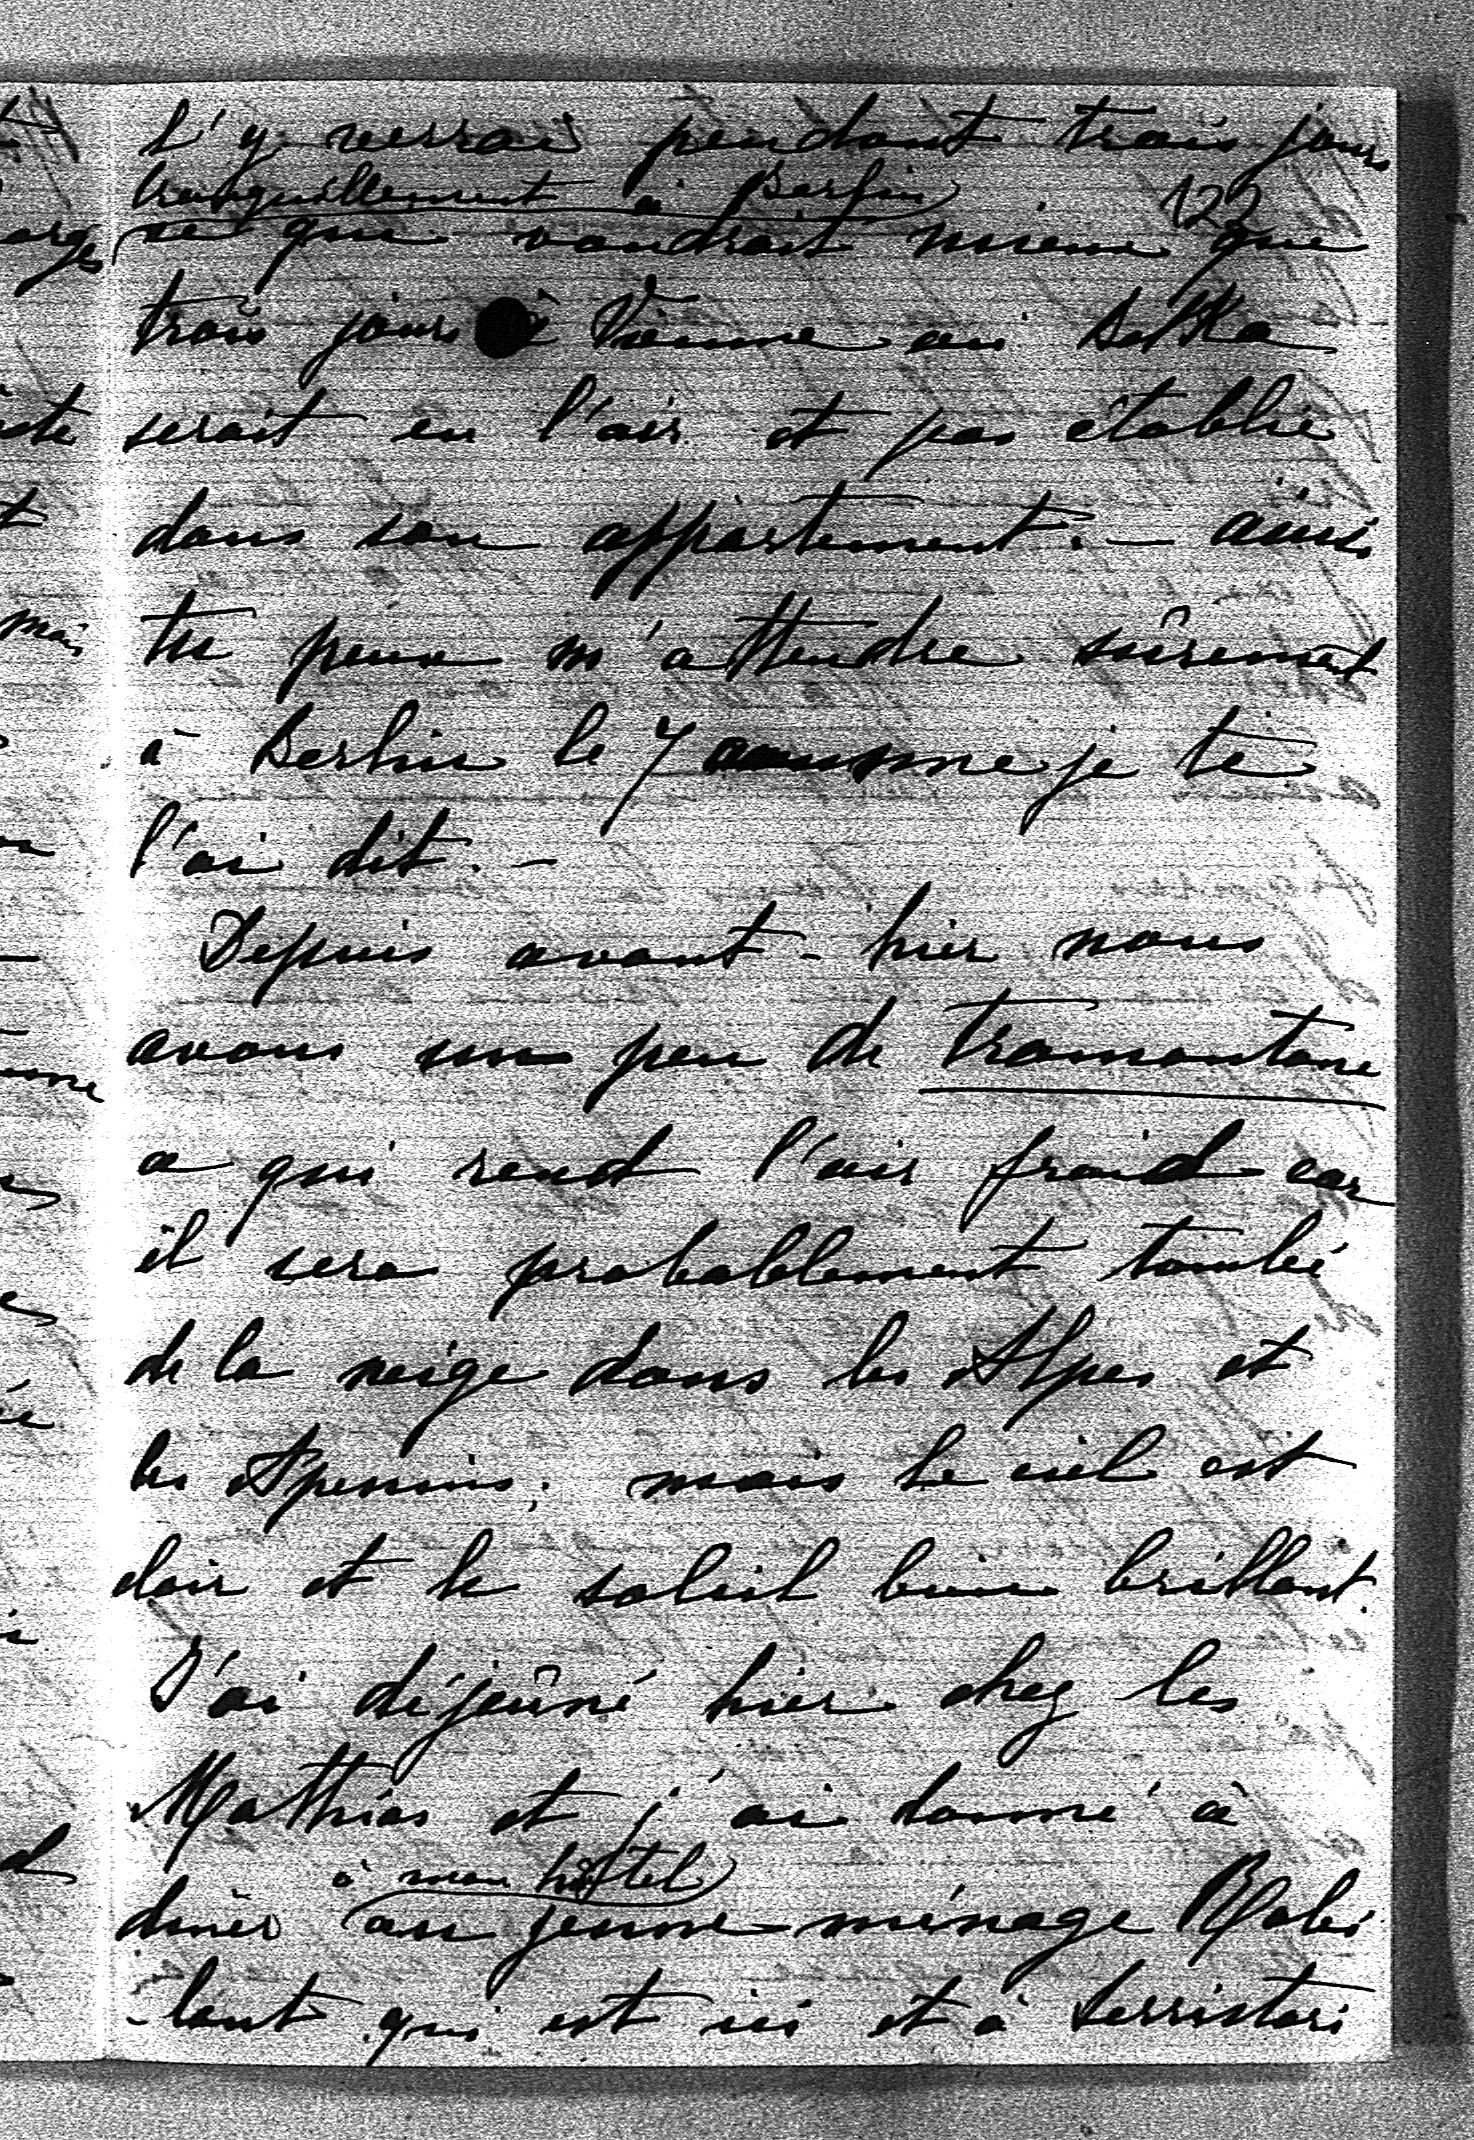 L'y verrai pendant trois jours
tranquillement à Berlin
122
ce qui voudrait mieux que
trois jours à Vienne où Betka
serait en l'air et pas établie
dans son appartement. — ainsi
tu peux m'attendre sûrement
à Berlin le 7 comme je te
l'ai dit. —
Depuis avant-hier nous
avons un peu de tramontane
ce qui rend l'air froid car
il sera probablement tombé
de la neige dans les Alpes et
les Apennins; mais le ciel est
clair et le soleil bien brillant.
J'ai déjeûné hier chez les
Mathias et j'ai donné à
à mon hôtel
dîner au jeune ménage Robi
-lant qui est ici et à Serristori